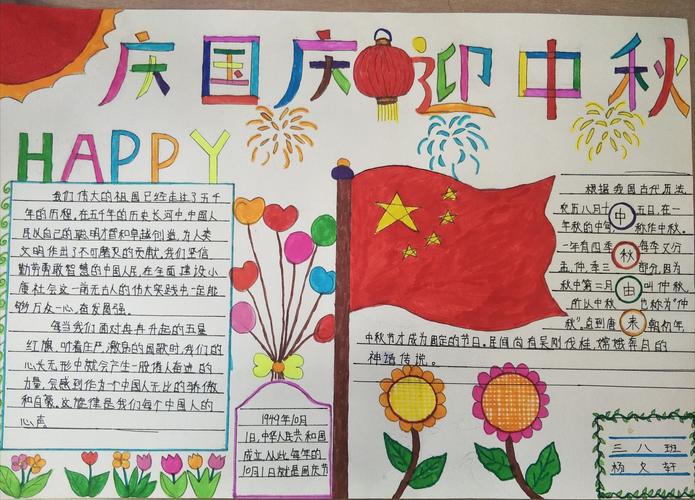 庆国庆迎中秋
HAPPY
我们伟大的祖国已经走过了五千
年的历程,在五千年的历史长河中,中国人
民以自己的聪明才智和卓越创造,为人类
文明作出了不可磨灭的贡献。我们坚信,
勤劳勇敢智慧的中国人民,在全面建设小
康社会这一前无古人的伟大实践中一定能
够万众一心,奋发图强。
每当我们面对冉冉升起的五星
红旗,听着庄严、激昂的国歌时,我们的
心头无形中就会产生一股倍人奋进的
力量,会感到作为个中国人无比的骄傲
和自豪。这旋律是我们每个中国人的
心声
1949年10月
1日,中华人民共和国
成立,从此每年的
10月1日就是国庆节
根据我国古代历法,
农历八月十五日,在一
年秋的中旬称作中秋。
一年有四季每季又分
孟、仲、季三部分,因为
秋中第二月叫仲秋,
所以中秋也称为“仲
秋”。直到唐朝初年
中秋节才成为固定的节日。民间尚有吴刚伐桂、嫦娥奔月的
神话传说。
中
秋
由
来
三八班
杨久轩